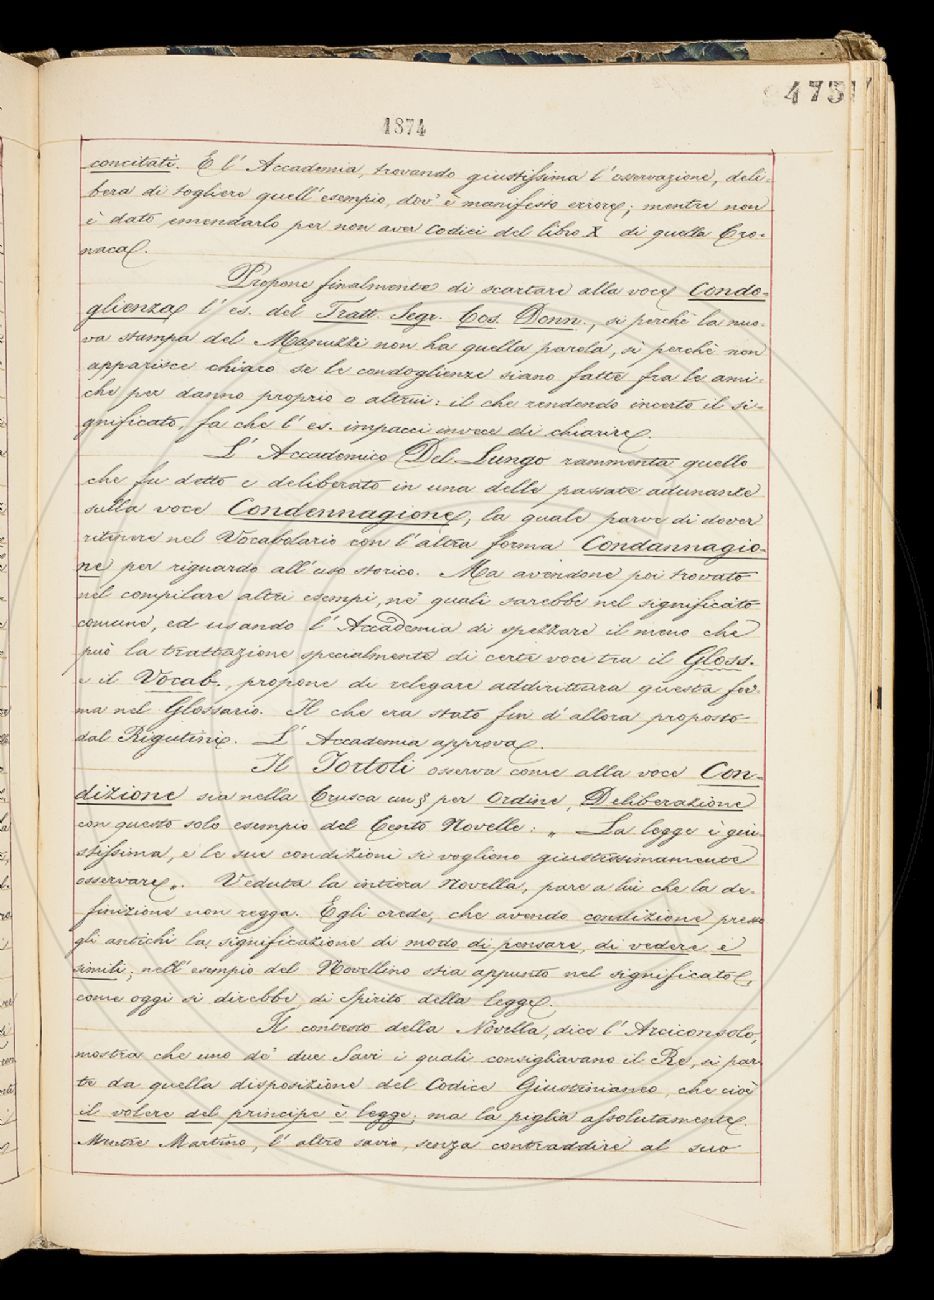 473
1874
concitati. E l' Accademia, trovando giustissima l'osservazione, deli-
bera di togliere quell'esempio, dov'è manifesto errore; mentre non
è dato emendarlo per non aver Codici del libro X di quella Cro-
naca.
Propone finalmente di scartare alla voce Condo-
glienza l' es. del Tratt. Segr. Cos. Donn., sì perchè la nuo-
va stampa del Manuzzi non ha quella parola, sì perchè non
apparisce chiaro se le condoglienze siano fatte fra le ami-
che per danno proprio o altrui: il che rendendo incerto il si-
gnificato, fa che l' es. impacci invece di chiarire.
L' Accademico Del Lungo rammenta quello
che fu detto e deliberato in una delle passate adunanze
sulla voce Condennagione, la quale parve di dover
ritenere nel Vocabolario con l'altra forma Condannagio-
ne per riguardo all'uso storico. Ma avendone poi trovato
nel compilare altri esempi, ne' quali sarebbe nel significato
comune, ed usando l' Accademia di spezzare il meno che
può la trattazione specialmente di certe voci tra il Gloss.
e il Vocab., propone di relegare addirittura questa for-
ma nel Glossario. Il che era stato fin d'allora proposto
dal Rigutini. L' Accademia approva.
Il Tortoli osserva come alla voce Con-
dizione sia nella Crusca un § per Ordine, Deliberazione
con questo solo esempio del Cento Novelle: „ La legge è giu-
stissima, e le sue condizioni si vogliono giustissimamente
osservare „. Veduta la intiera Novella, pare a lui che la de-
finizione non regga. Egli crede, che avendo condizione presso
gli antichi la significazione di modo di pensare, di vedere e
simili; nell'esempio del Novellino stia appunto nel significato,
come oggi si direbbe, di Spirito della legge.
Il contesto della Novella, dice l' Arciconsolo,
mostra che uno de' due Savi i quali consigliavano il Re, si par-
te da quella disposizione del Codice Giustinianeo, che cioè
il volere del principe è legge; ma la piglia assolutamente.
Mentre Martino, l' altro savio, senza contraddire al suo